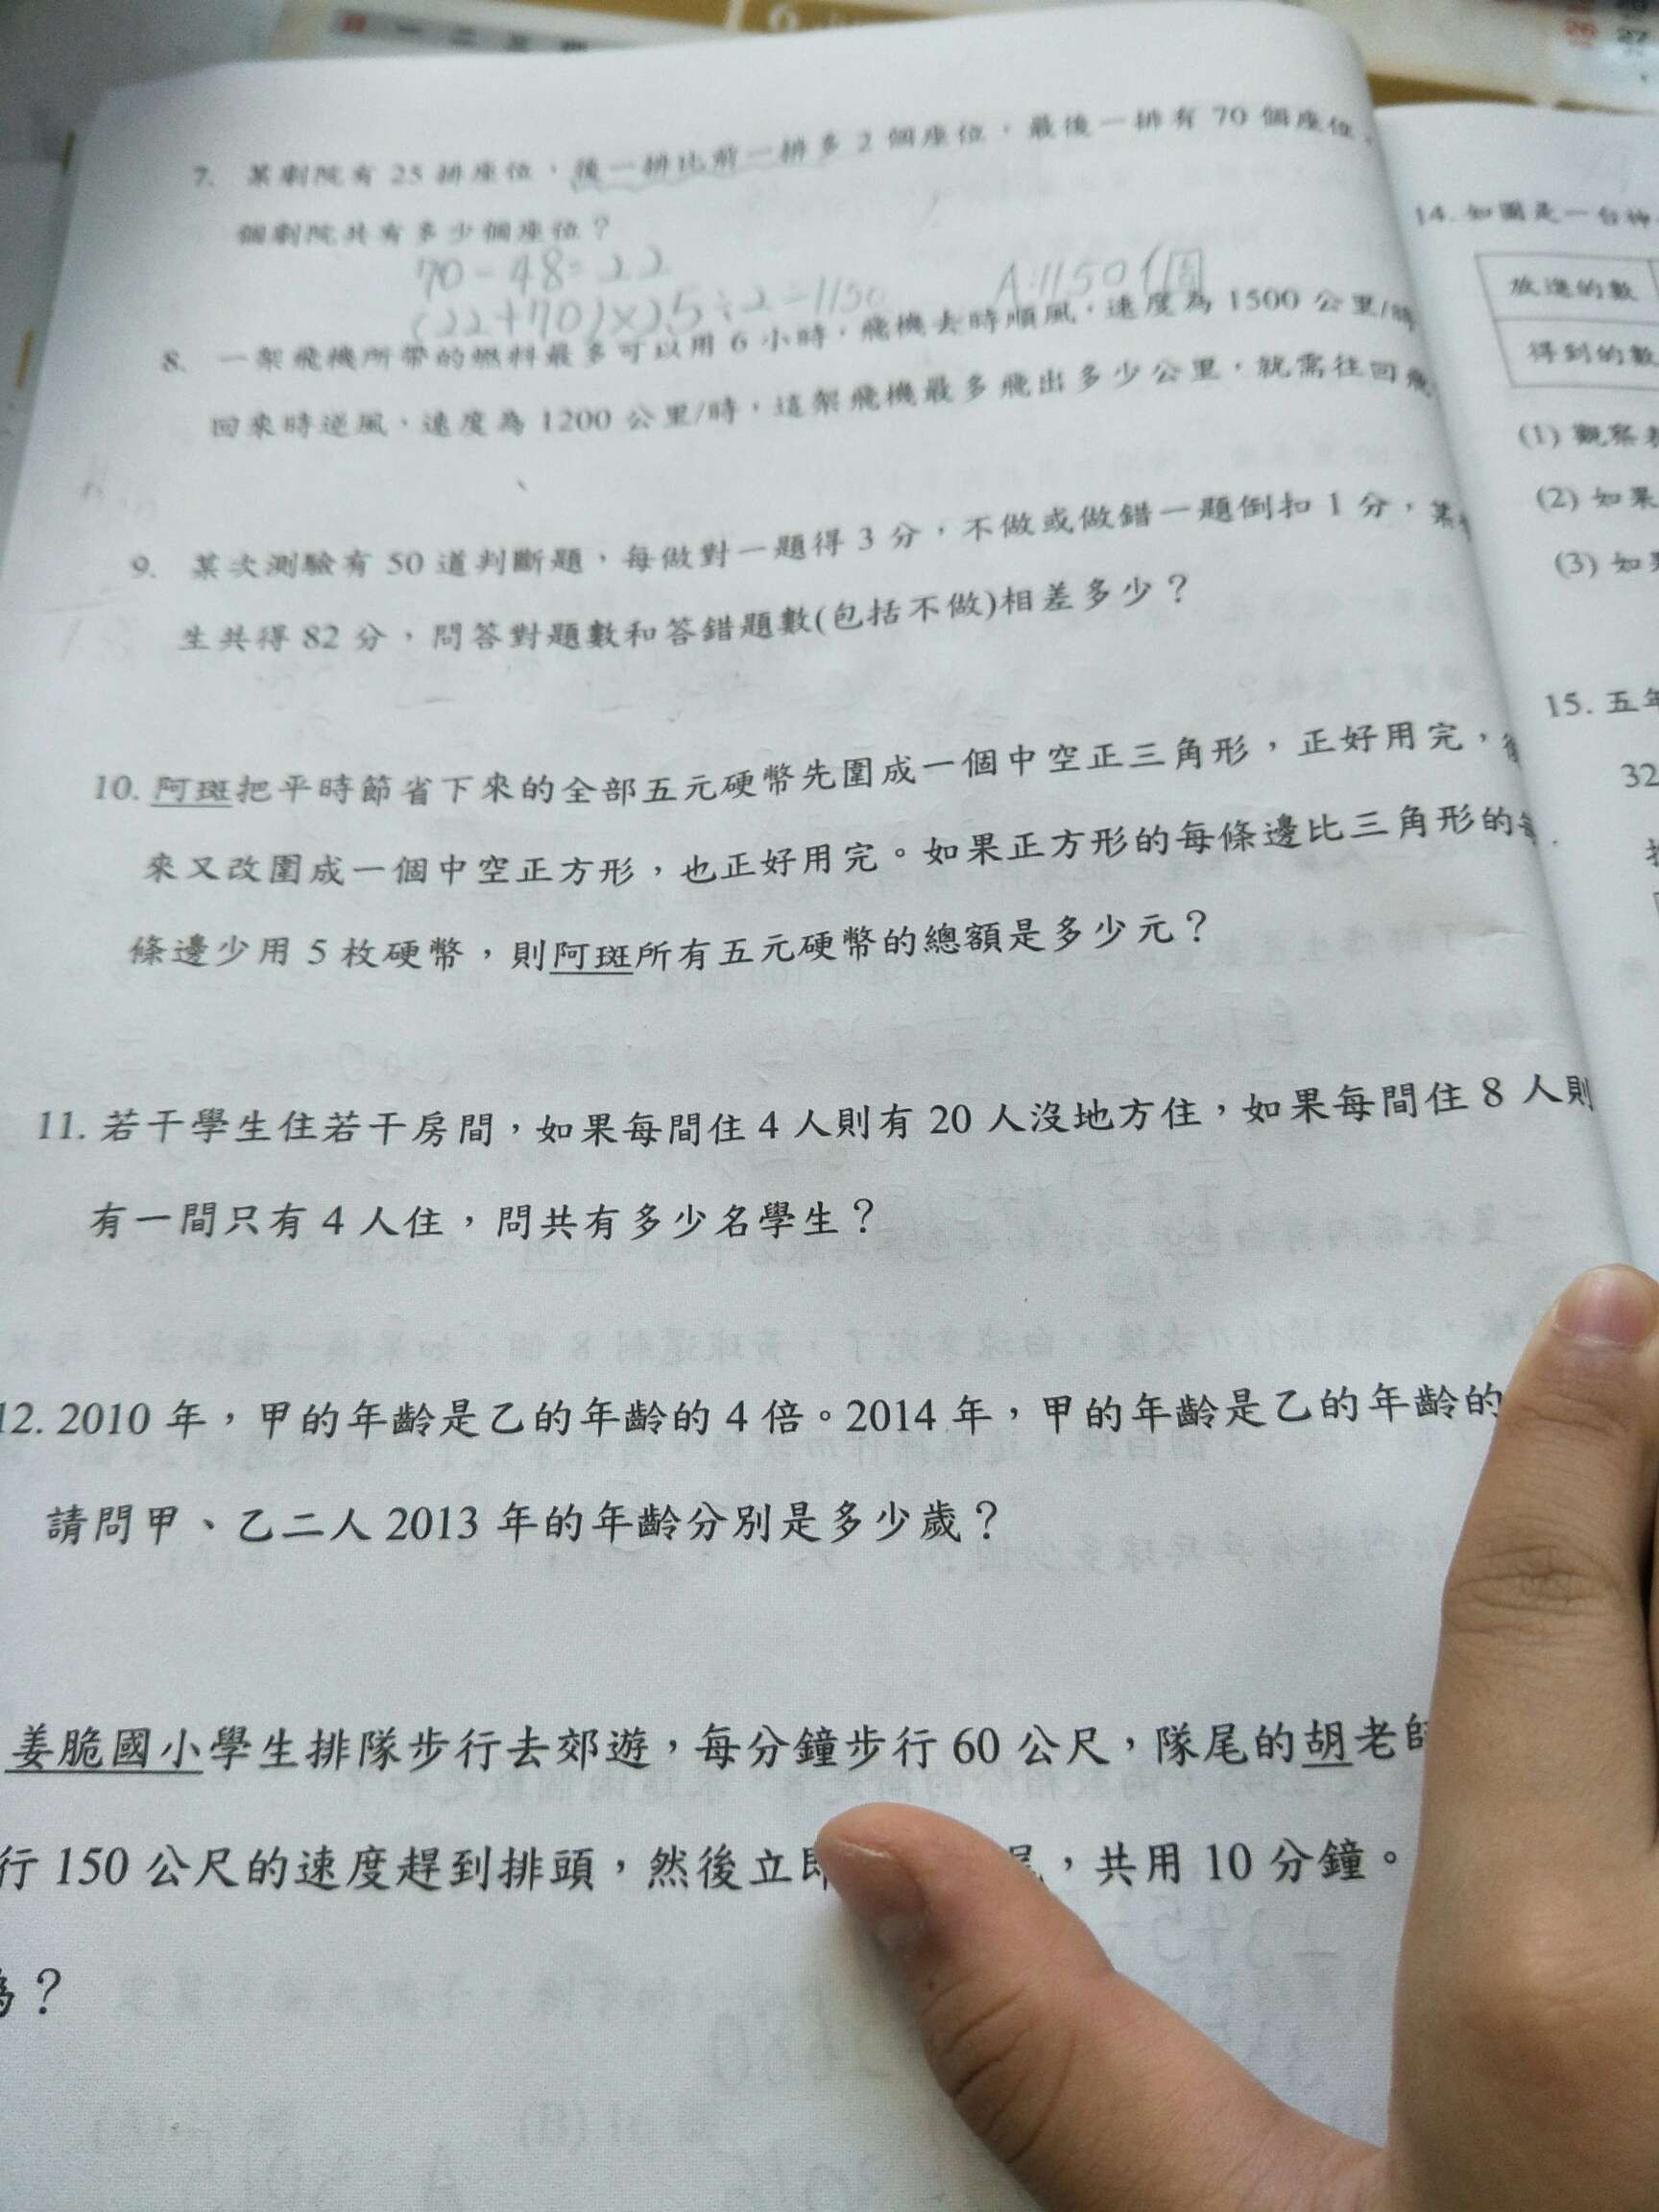 7. 某劇院有 25 排座位，後一排比前一排多 2 個座位，最後一排有 70 個座位，
個劇院共有多少個座位？
70-48=22
(22+70)×25÷2=1150
A:1150個
8. 一架飛機所帶的燃料最多可以用 6 小時，飛機去時順風，速度為 1500 公里/時
回來時逆風，速度為 1200 公里/時，這架飛機最多飛出多少公里，就需往回飛
9. 某次測驗有 50 道判斷題，每做對一題得 3 分，不做或做錯一題倒扣 1 分，某
生共得 82 分，問答對題數和答錯題數(包括不做)相差多少？
10. 阿斑把平時節省下來的全部五元硬幣先圍成一個中空正三角形，正好用完，
來又改圍成一個中空正方形，也正好用完。如果正方形的每條邊比三角形的
條邊少用 5 枚硬幣，則阿斑所有五元硬幣的總額是多少元？
11. 若干學生住若干房間，如果每間住 4 人則有 20 人沒地方住，如果每間住 8 人則
有一間只有 4 人住，問共有多少名學生？
12. 2010 年，甲的年齡是乙的年齡的 4 倍。2014 年，甲的年齡是乙的年齡的
請問甲、乙二人 2013 年的年齡分別是多少歲？
姜脆國小學生排隊步行去郊遊，每分鐘步行 60 公尺，隊尾的胡老師
行 150 公尺的速度趕到排頭，然後立即，共用 10 分鐘。
？
14. 如圖是一台神
放進的數
得到的數
(1) 觀察
(2) 如果
(3) 如果
15. 五年
32
6
26 27